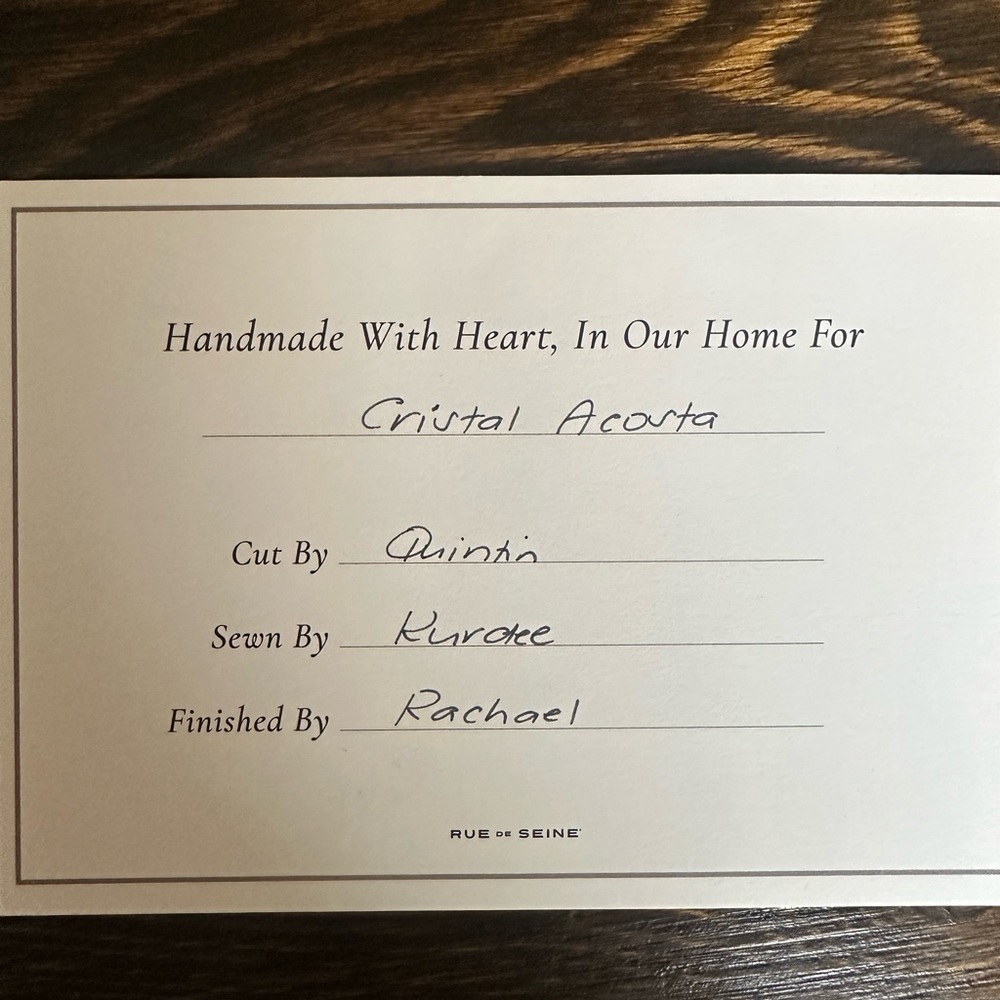 Handmade With Heart, In Our Home For
Cristal Acosta
Cut By Quintin
Sewn By
Finished By Rachael
RUE DE SEINE